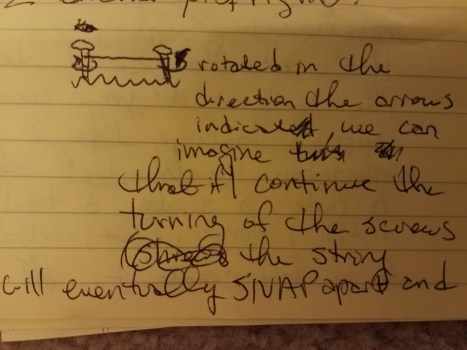 rotated in the
direction the arrows
indicated, we can
imagine
that if I continue the
turning of the screws
the string
will eventually SNAP apart and